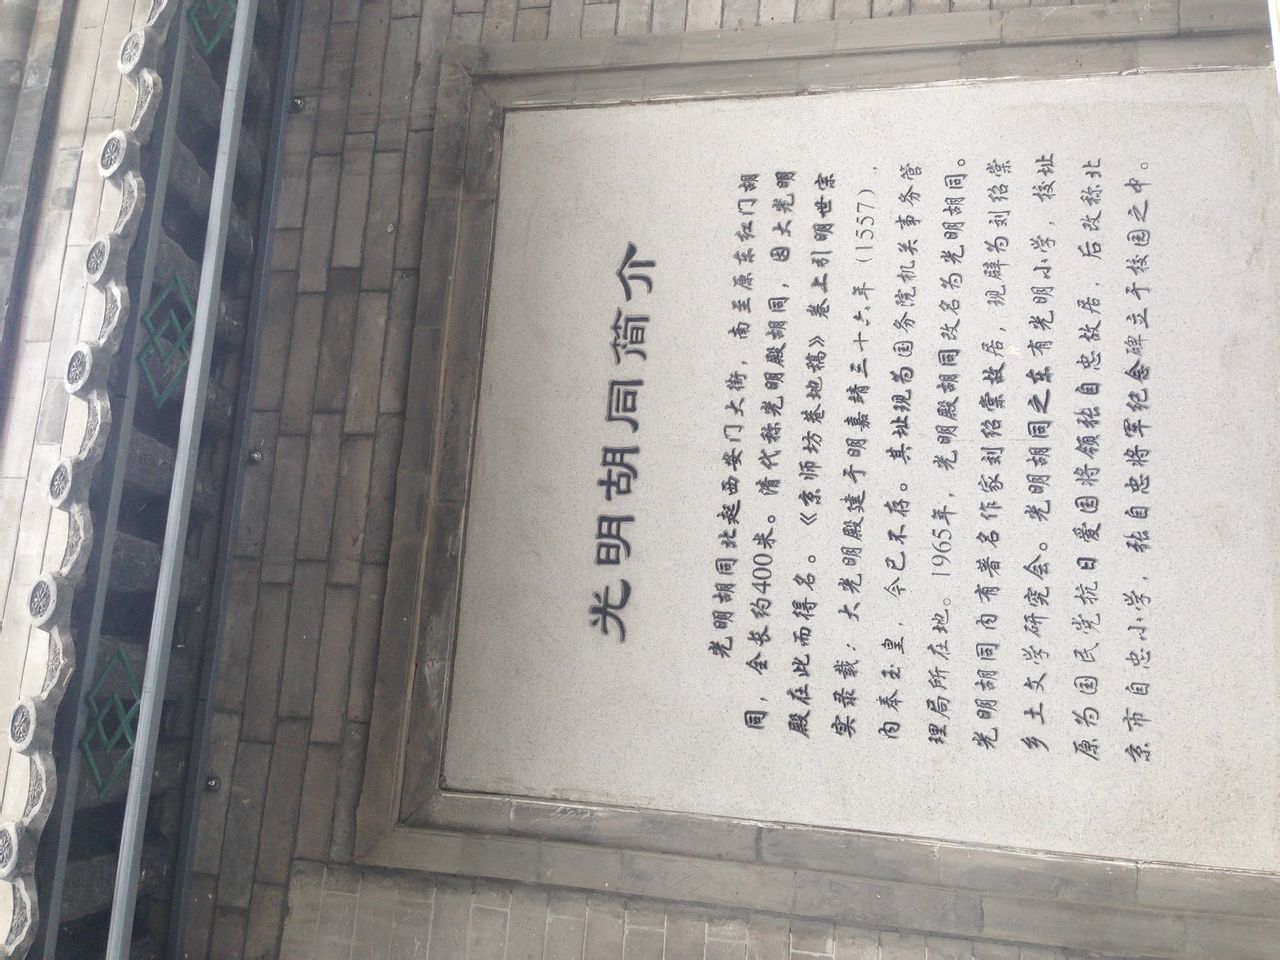 光明胡同简介
光明胡同北起西安门大街，南至原东红门胡
同，全长约400米。清代称光明殿胡同，因大光明
殿在此而得名。《京师坊巷地稿》卷上引明世宗
实录载：大光明殿建于明嘉靖三十六年（1557），
内奉玉皇，今已不存。其址现为国务院机关事务管
理局所在地。1965年，光明殿胡同改名为光明胡同。
光明胡同内有著名作家刘绍棠故居，现辟为刘绍棠
乡土文学研究会。光明胡同之东有光明小学，校址
原为国民党抗日爱国将领张自忠故居，后改称北
京市自忠小学，张自忠将军纪念碑立于校园之中。